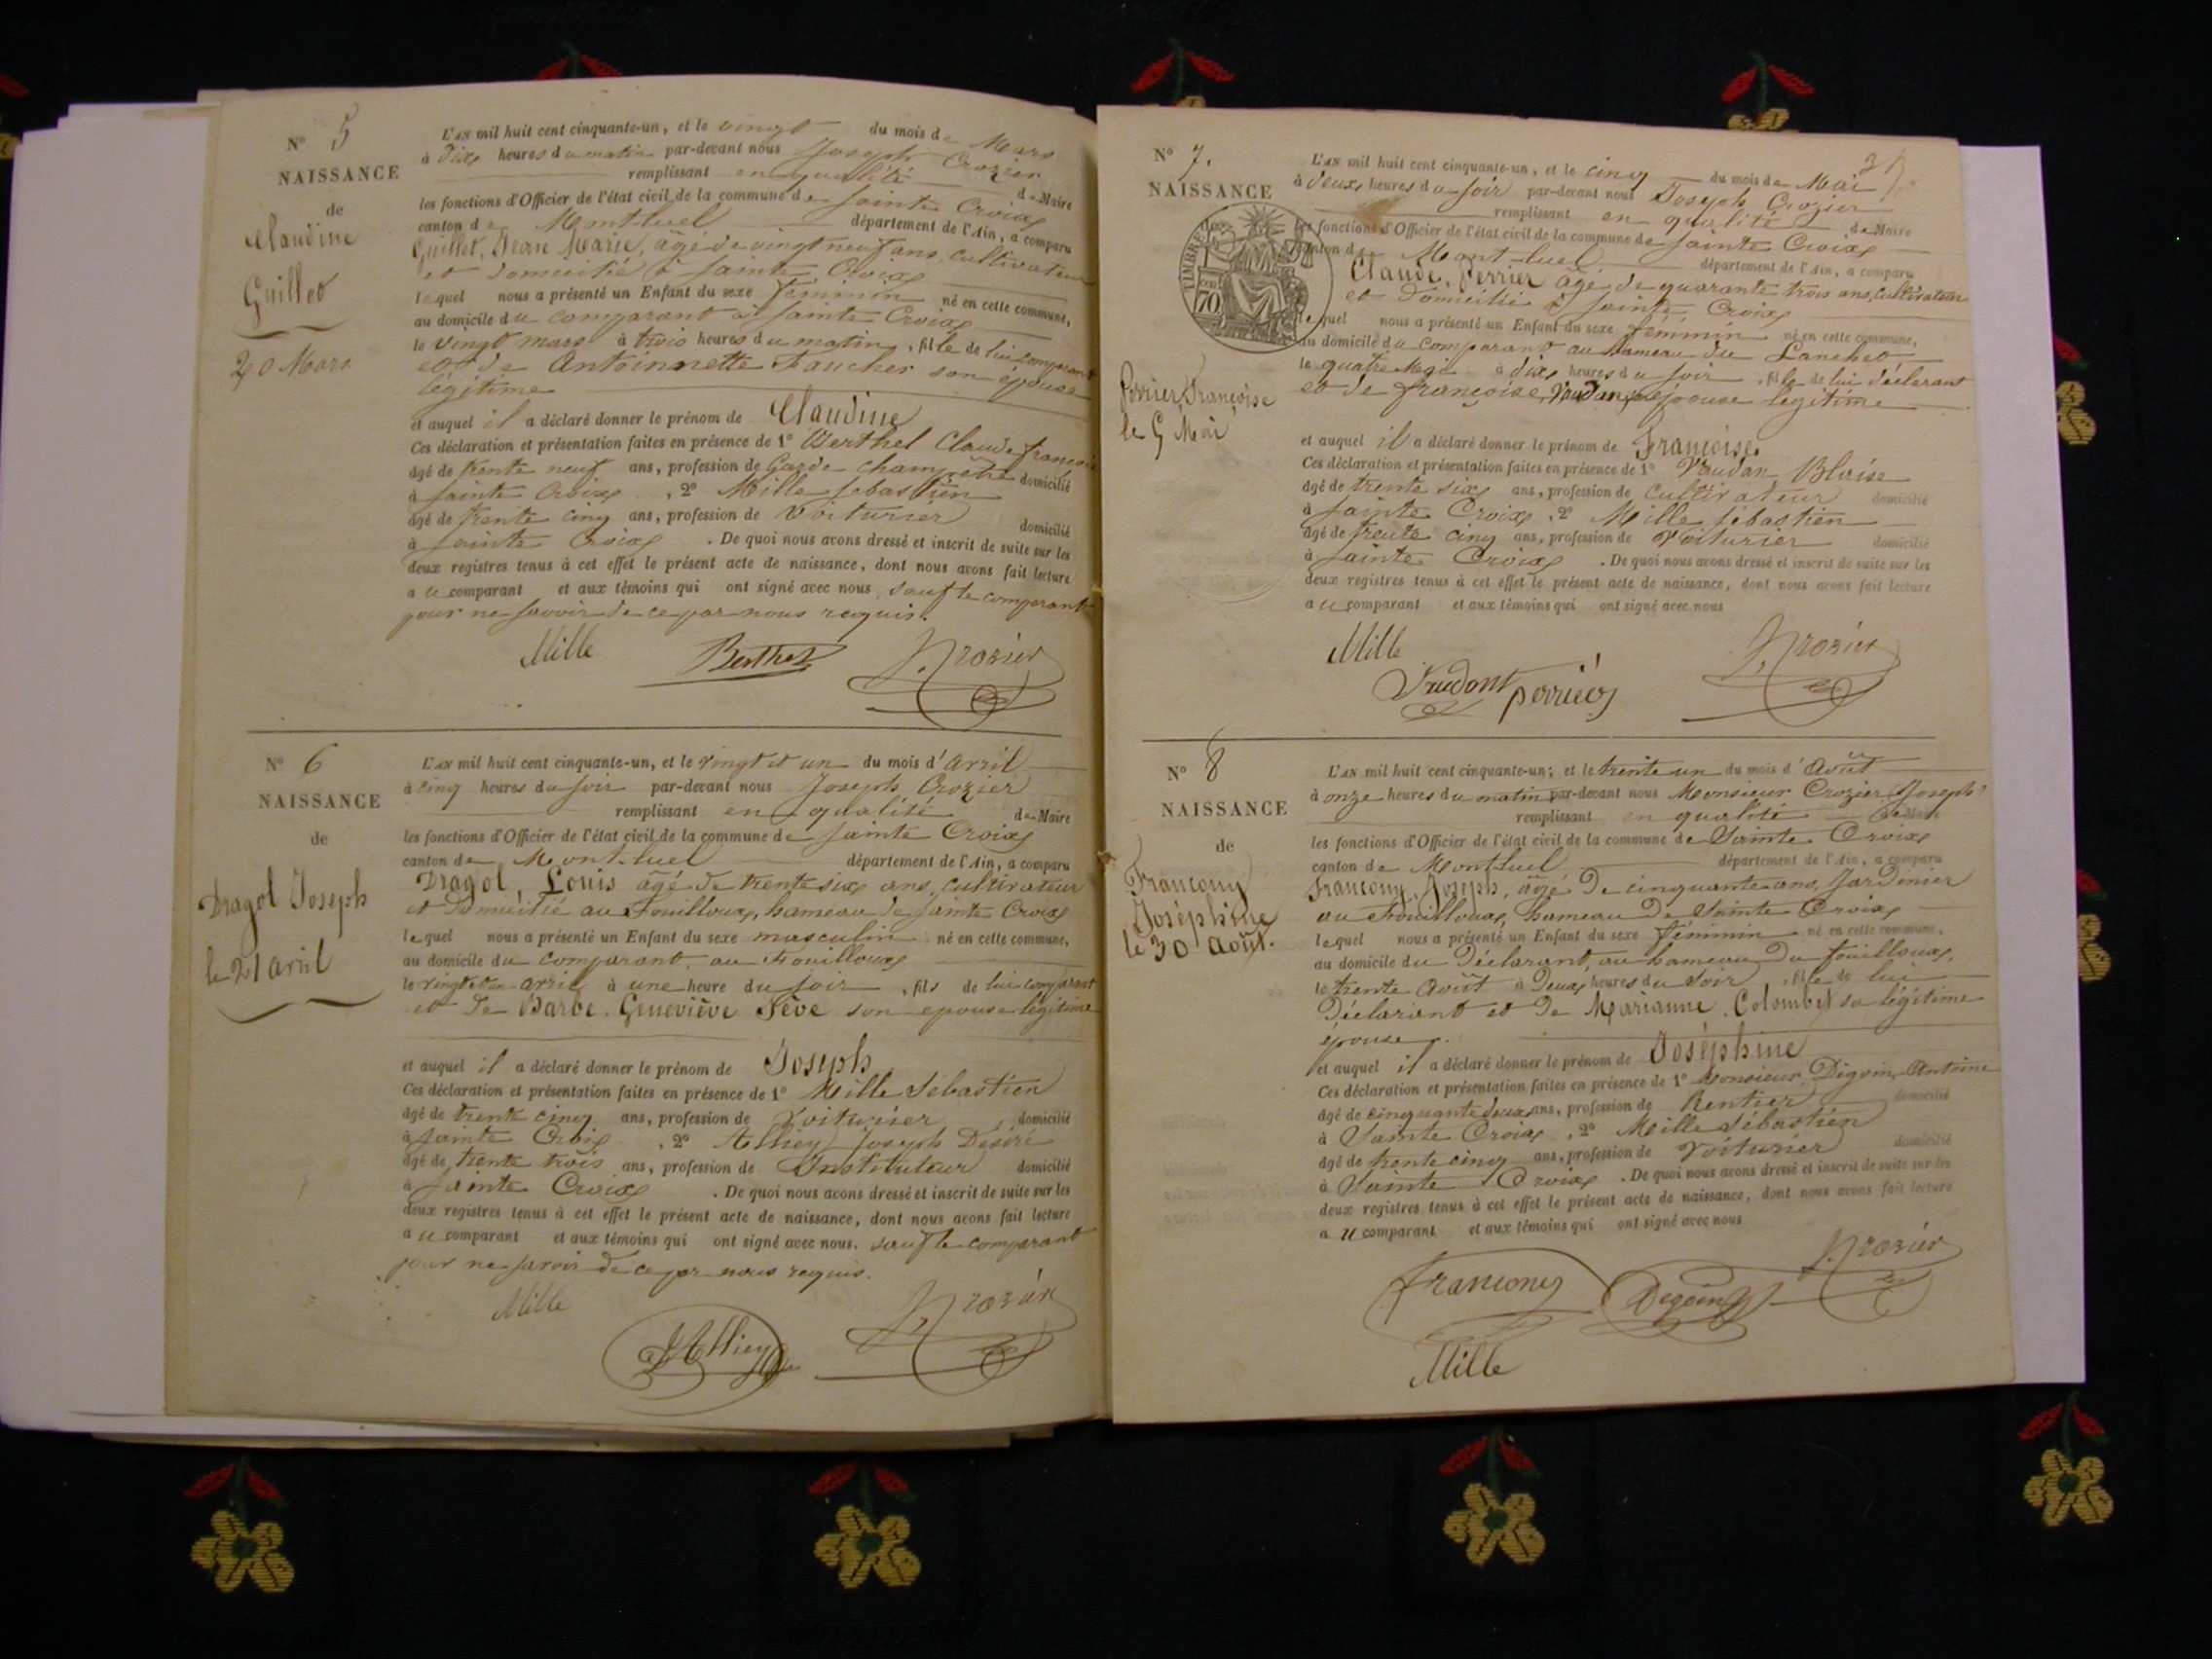 N° 5
NAISSANCE
de
Claudine
Guillet
20 Mars
L'AN mil huit cent cinquante-un, et le vingt du mois de Mars
à dix heures du matin par-devant nous Joseph Crozier
remplissant en qualité de Maire
les fonctions d'Officier de l'état civil de la commune de Sainte Croix
canton de Montluel département de l'Ain, a comparu
Guillet, Jean Marie, âgé de vingt neuf ans, cultivateur
et domicilié à Sainte Croix
lequel nous a présenté un Enfant du sexe féminin né en cette commune,
au domicile du comparant à Sainte Croix
le vingt mars à trois heures du matin, fille de lui comparant
et de Antoinnette Faucher son épouse
légitime
et auquel il a déclaré donner le prénom de Claudine
Ces déclaration et présentation faites en présence de 1° Berthet Claude françois
âgé de trente neuf ans, profession de Garde champêtre domicilié
à Sainte Croix, 2° Mille Sebastien
âgé de trente cinq ans, profession de Voiturier domicilié
à Sainte Croix. De quoi nous avons dressé et inscrit de suite sur les
deux registres tenus à cet effet le présent acte de naissance, dont nous avons fait lecture
a u comparant et aux témoins qui ont signé avec nous, sauf le comparant
pour ne savoir de ce par nous requis.
Mille Berthet J. Crozier
N° 6
NAISSANCE
de
Dragol Joseph
le 21 avril
L'AN mil huit cent cinquante-un, et le vingt et un du mois d'avril
à cinq heures du soir par-devant nous Joseph Crozier
remplissant en qualité de Maire
les fonctions d'Officier de l'état civil de la commune de Sainte Croix
canton de Montluel département de l'Ain, a comparu
Dragol, Louis âgé de trente six ans, cultivateur
et domicilié au Fouilloux, hameau de Sainte Croix
lequel nous a présenté un Enfant du sexe masculin né en cette commune,
au domicile du comparant, au Fouilloux
le vingt et un avril à une heure du soir, fils de lui comparant
et de Barbe Geneviève Sève son epouse légitime
et auquel il a déclaré donner le prénom de Joseph
Ces déclaration et présentation faites en présence de 1° Mille Sébastien
âgé de trente cinq ans, profession de Voiturier, domicilié
à Sainte Croix, 2° Joseph Désiré
âgé de trente trois ans, profession de Instituteur domicilié
à Sainte Croix. De quoi nous avons dressé et inscrit de suite sur les
deux registres tenus à cet effet le présent acte de naissance, dont nous avons fait lecture
a u comparant et aux témoins qui ont signé avec nous. sauf le comparant
pour ne savoir de ce par nous requis.
Mille J. Crozier
N° 7.
NAISSANCE
TIMBRE
70
Perrier Françoise
le 5 Mai
L'AN mil huit cent cinquante-un, et le cinq du mois de Mai
à deux heures du soir par-devant nous Joseph Crozier
remplissant en qualité de Maire
les fonctions d'Officier de l'état civil de la commune de Sainte Croix
canton de Montluel département de l'Ain, a comparu
Claude, Perrier âgé de quarante trois ans, cultivateur
et domicilié à Sainte Croix
lequel nous a présenté un Enfant du sexe féminin né en cette commune,
au domicile du comparant au hameau de Lanchet
le quatre Mai à dix heures du soir, fille de lui déclarant
et de françoise, Vaudan, épouse légitime
et auquel il a déclaré donner le prénom de Françoise
Ces déclaration et présentation faites en présence de 1° Vaudan Blaise
âgé de trente six ans, profession de cultivateur domicilié
à Sainte Croix, 2° Mille Sébastien
âgé de trente cinq ans, profession de Voiturier domicilié
à Sainte Croix. De quoi nous avons dressé et inscrit de suite sur les
deux registres tenus à cet effet le présent acte de naissance, dont nous avons fait lecture
a u comparant et aux témoins qui ont signé avec nous
Mille J. Crozier
N° 8
NAISSANCE
de
Francony
Joséphine
le 30 août.
L'AN mil huit cent cinquante-un; et le trente un du mois d'Août
à onze heures du matin par-devant nous Monsieur Crozier, Joseph
remplissant en qualité de Maire
les fonctions d'Officier de l'état civil de la commune de Sainte Croix
canton de Montluel département de l'Ain, a comparu
Francony, Joseph, âgé de cinquante ans, Jardinier
au Fouilloux, hameau de Sainte Croix
lequel nous a présenté un Enfant du sexe féminin né en cette commune,
au domicile du Déclarant, au hameau du Fouilloux,
le trente Août à Deux heures du Soir, fille de lui
Déclarant et de Marianne Colombet sa légitime
épouse.
et auquel il a déclaré donner le prénom de Joséphine
Ces déclaration et présentation faites en présence de 1° Monsieur Digoin Antoine
âgé de cinquante deux ans, profession de Rentier domicilié
à Sainte Croix, 2° Mille Sébastien
âgé de trente cinq ans, profession de Voiturier domicilié
à Sainte Croix. De quoi nous avons dressé et inscrit de suite sur les
deux registres tenus à cet effet le présent acte de naissance, dont nous avons fait lecture
a u comparant et aux témoins qui ont signé avec nous
J. Crozier
Francony Digoin
Mille